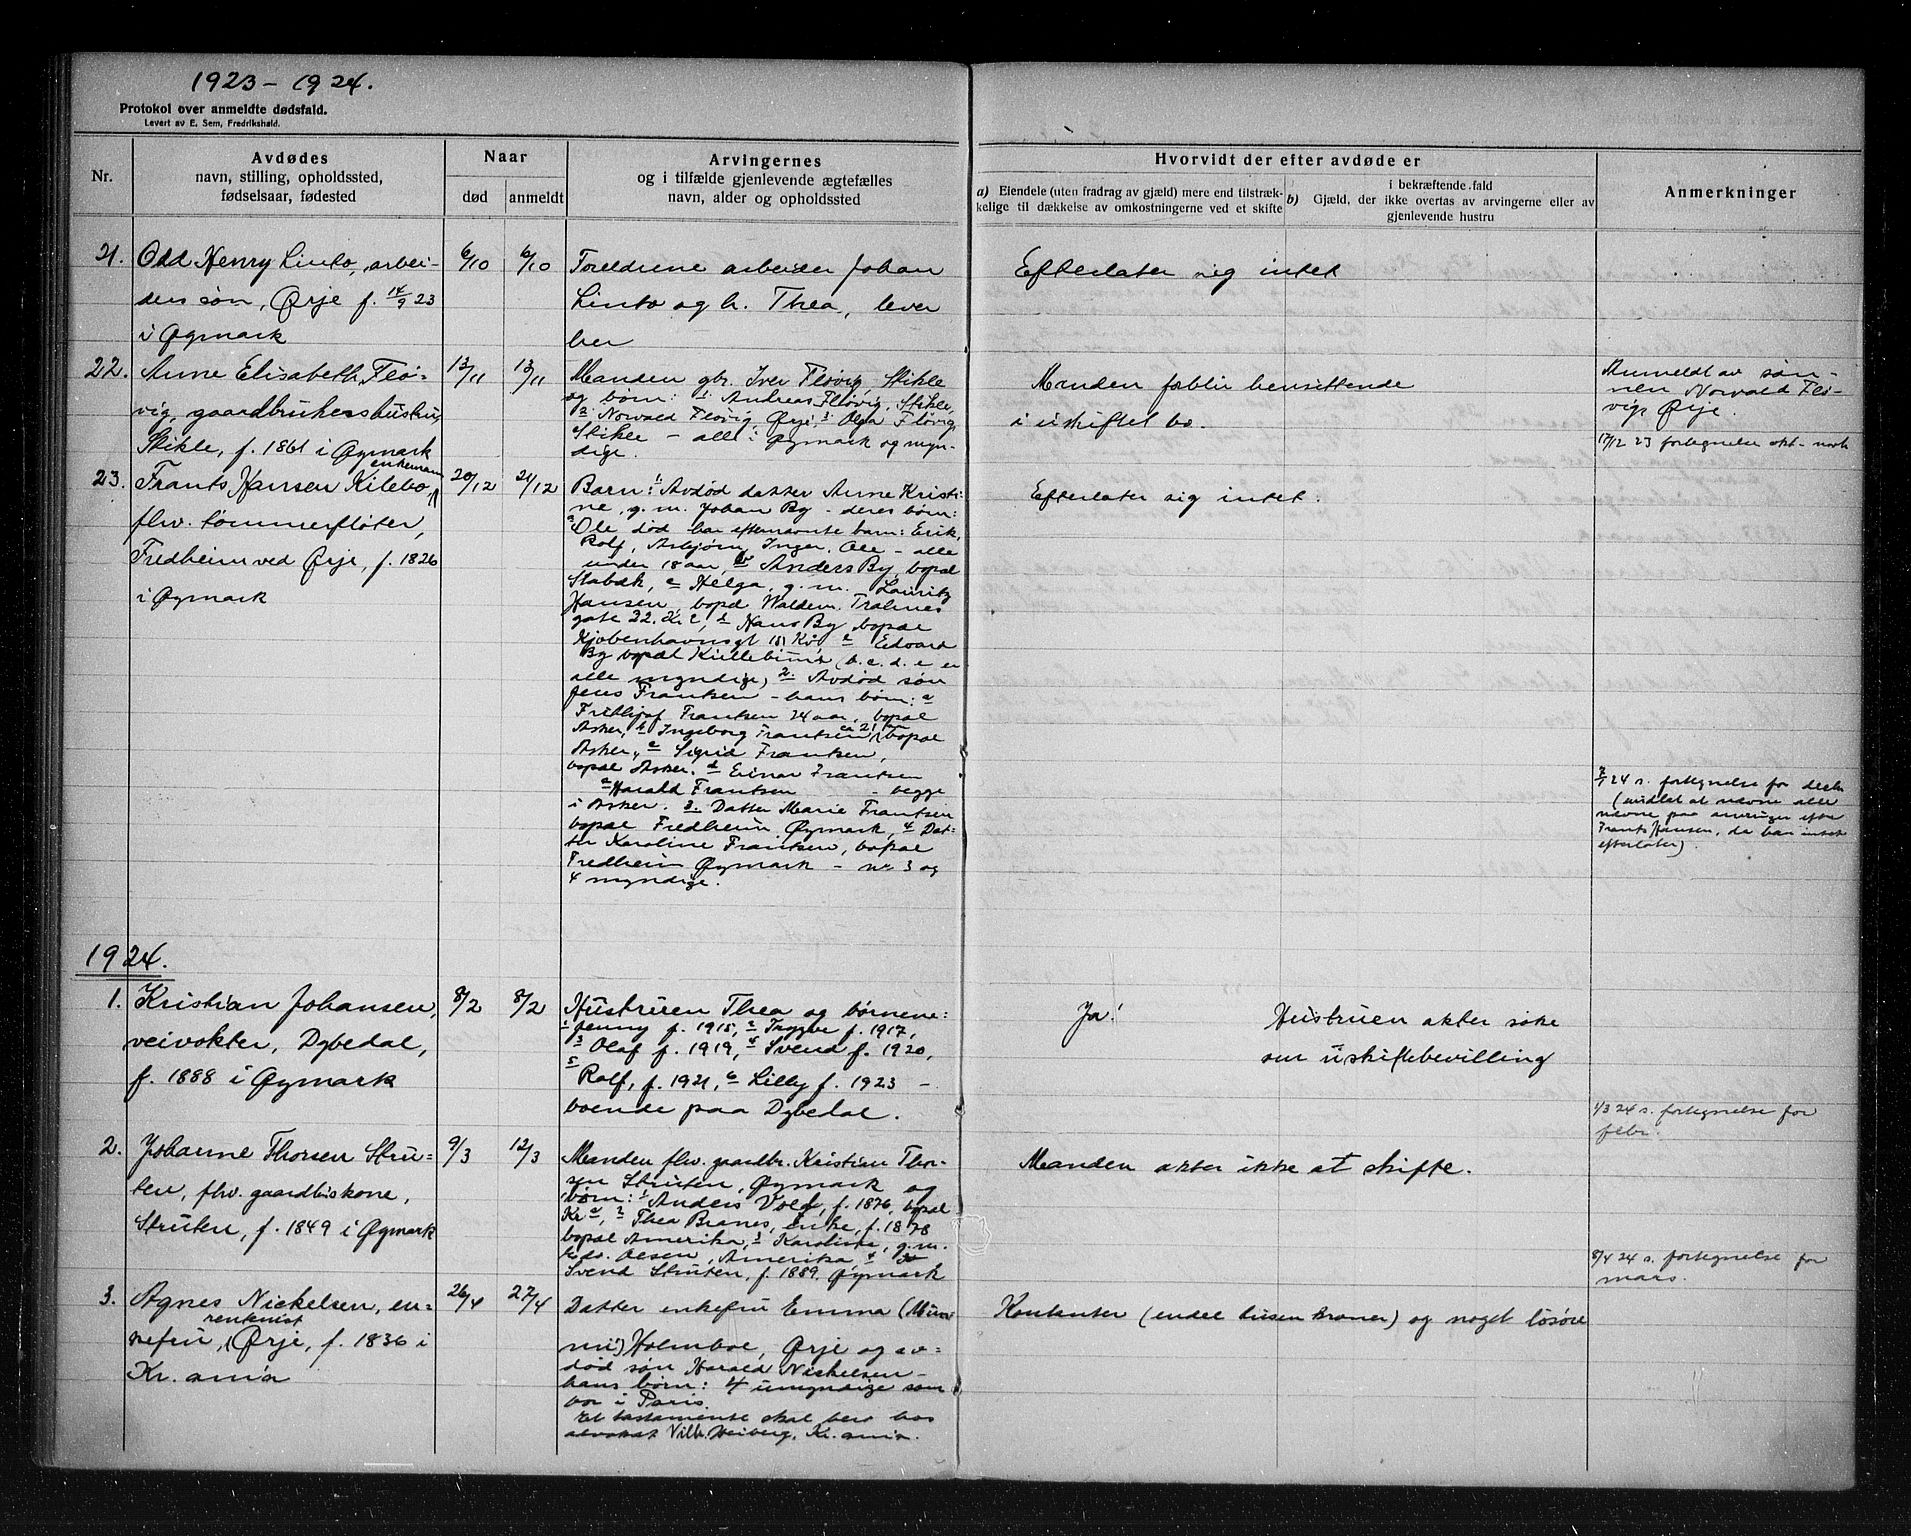 1923 – 1924.
Protokol over anmeldte dødsfald.
Levert av E. Sem, Fredrikshald.
Nr.
Avdødes
navn, stilling, opholdssted,
fødselsaar, fødested
Naar
død
anmeldt
Arvingernes
og i tilfælde gjenlevende ægtefælles
navn, alder og opholdssted
Hvorvidt der efter avdøde er
a) Eiendele (uten fradrag av gjæld) mere end tilstræk-
kelige til dækkelse av omkostningerne ved et skifte
i bekræftende fald
b) Gjæld, der ikke overtas av arvingerne eller av
gjenlevende hustru
Anmerkninger
21.
Odd Henry Linto, arbei-
ders søn, Ørje f. 14/9 23
i Øymark
6/10
6/10
Foreldrene arbeider Johan
Linto og h. Thea, lever
her
Efterlater sig intet
22.
Anne Elisabeth Flø-
vig, gaardbrukers hustru,
Stikle, f. 1861 i Øymark
13/11
13/11
Manden gbr. Iver Fløvig, Stikle
og børn: 1. Andreas Fløvig, Stikle,
2. Norvald Fløvig, Ørje, 3. Olga Fløvig,
Stikle – alle i Øymark og myn-
dige.
Manden forblir hensittende
i uskiftet bo.
Anmeldt av søn-
nen Norvald Flø-
vig, Ørje.
17/12 23 fortegnelse okt-novb
23.
enkemann
Frants Hansen Kilebo,
fhv. tømmerfløter,
Fredheim ved Ørje, f. 1826
i Øymark
20/12
21/12
Barn: 1. Avdød datter Anne Kristi-
ne, g.m. Johan By – deres børn:
a Ole død har efternævnte barn: Erik,
Rolf, Asbjørn, Inger, Ole – alle
under 18 aar, b Anders By, bopæl
Stabæk, c Helga, g.m. Lauritz
Hansen, bopæl Waldem. Tranes
gate 22. Kr., d Hans By, bopæl
Kjøbenhavnsgt 15, e Edvard
By bopæl (b. c. d. e er
alle myndige), 2. Avdød søn
Jens Frantsen – hans børn: a
Frithjof Frantsen 24 aar, bopæl
Asker, b Ingeborg Frantsen ca 21 bopæl
Asker, c Sigrid Frantsen,
bopæl Asker. d Einar Frantsen
e Harald Frantsen – begge
i Asker. 3. Datter Marie Frantsen
bopæl Fredheim, Øymark, 4 Dat-
ter Karoline Frantsen, bopæl
Fredheim Øymark – nr 3 og
4 myndige.
Efterlater sig intet.
2/1 24 s. fortegnelse for desbr
(undlat at nævne alle
navne paa arvinger efter
Frants Hansen, da han intet
efterlater).
1924.
1.
Kristian Johansen,
veivokter, Dybedal,
f. 1888 i Øymark
8/2
8/2
Hustruen Thea og børnene:
1 Jenny f. 1915, 2 Trygve f. 1917,
3 Olaf f. 1919, 4 Svend f. 1920,
5 Rolf, f. 1921, 6 Lilly f. 1923 –
boende paa Dybedal.
Ja!
Hustruen akter søke
om uskiftebevilling
1/3 24 s. fortegnelse for
febr.
2.
Johanne Thorsen Stru-
ten, fhv. gaardbr.kone,
Struten, f. 1849 i Øymark
9/3
12/3
Manden fhv. gaardbr. Kristian Thor-
sen Struten, Øymark og
børn: 1 Anders Vold, f. 1876, bopæl
Kr a, 2 Thea Branes, enke, f. 1878
bopæl Amerika, 3 Karoline, g.m.
Edv. Olsen, Amerika 4
Svend Struten, f. 1889, Øymark
Manden akter ikke at skifte.
8/4 24 s. fortegnelse for
mars.
3.
Agnes Nickelsen, en-
rentenist
kefru, Ørje, f. 1836 i
Kr.ania
26/4
27/4
Datter enkefru Emma (Mun-
mi) Holmboe, Ørje og av-
død søn Harald Nickelsen –
hans børn: 4 umyndige som
bor i Paris.
Et testamente skal bero hos
advokat Vilh. Heiberg, Kr.ania.
Kontanter (endel tusen kroner) og noget løsøre